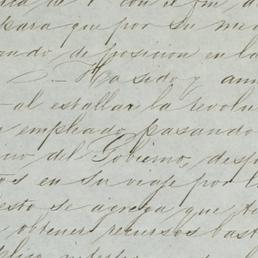 con el fin de
para que por su me
ando de posicion en la
2.— Ha sido y am
al estallar la revolu
a empleado, pasando
ino del Gobierno, desp
os en su viaje por l
esto se agrega que
obtener recursos bast